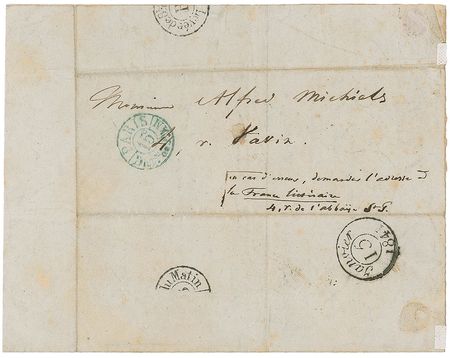 Levée de
Monsieur Alfred Michiels
PARIS
4, r. Vavin.
en cas d'erreur, demander l'adresse
la France littéraire
4, r. de l'abbaye S-G.
Janvier
15
184
du Matin